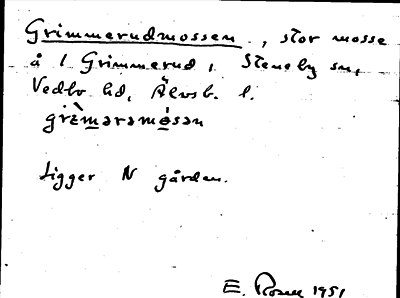 Grimmerudmossen, stor mosse
å 1 Grimmerud, Steneby sn,
Vedbo hd, Älvsb. l.
grìmərəmósən
Ligger N gården.
E. Rosell 1951